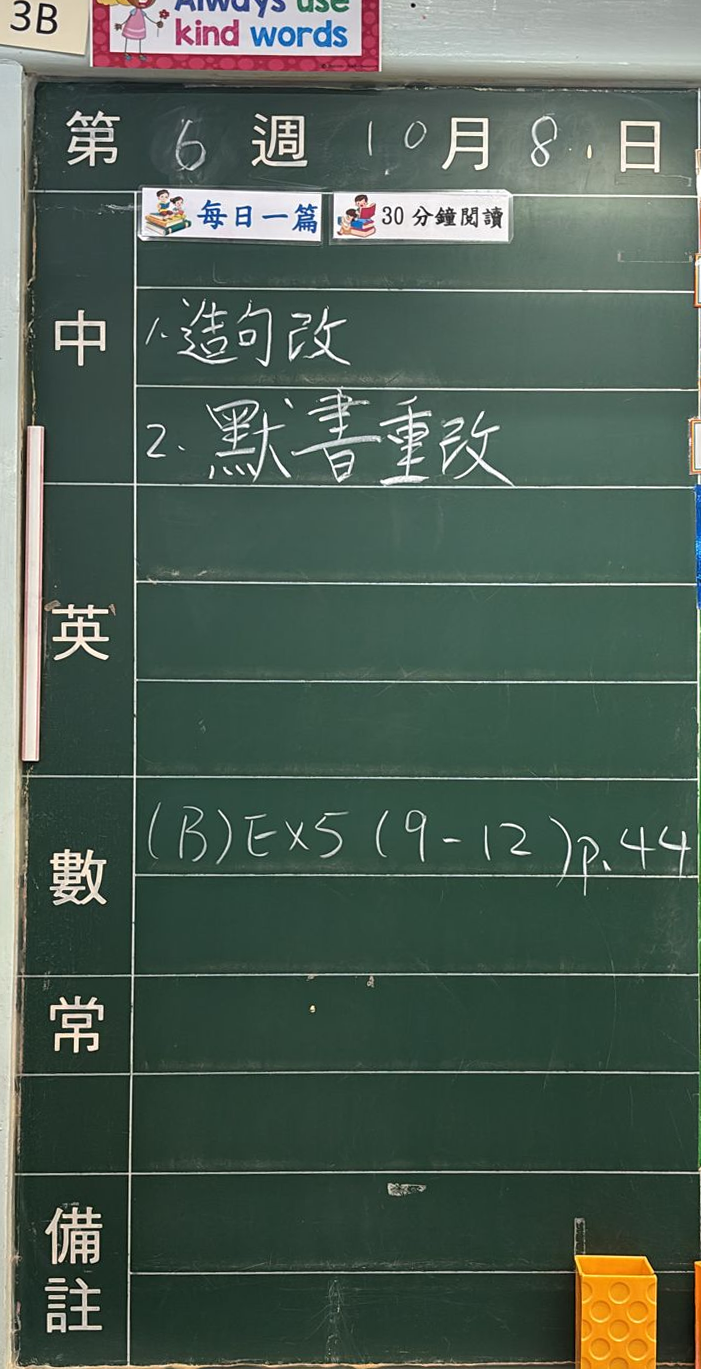 3B
Always use
kind words
第 6 週 10 月 8 日
每日一篇 30分鐘閱讀
中
1. 造句改
2. 默書重改
英
數
(B) Ex5 (9-12) p.44
常
備註